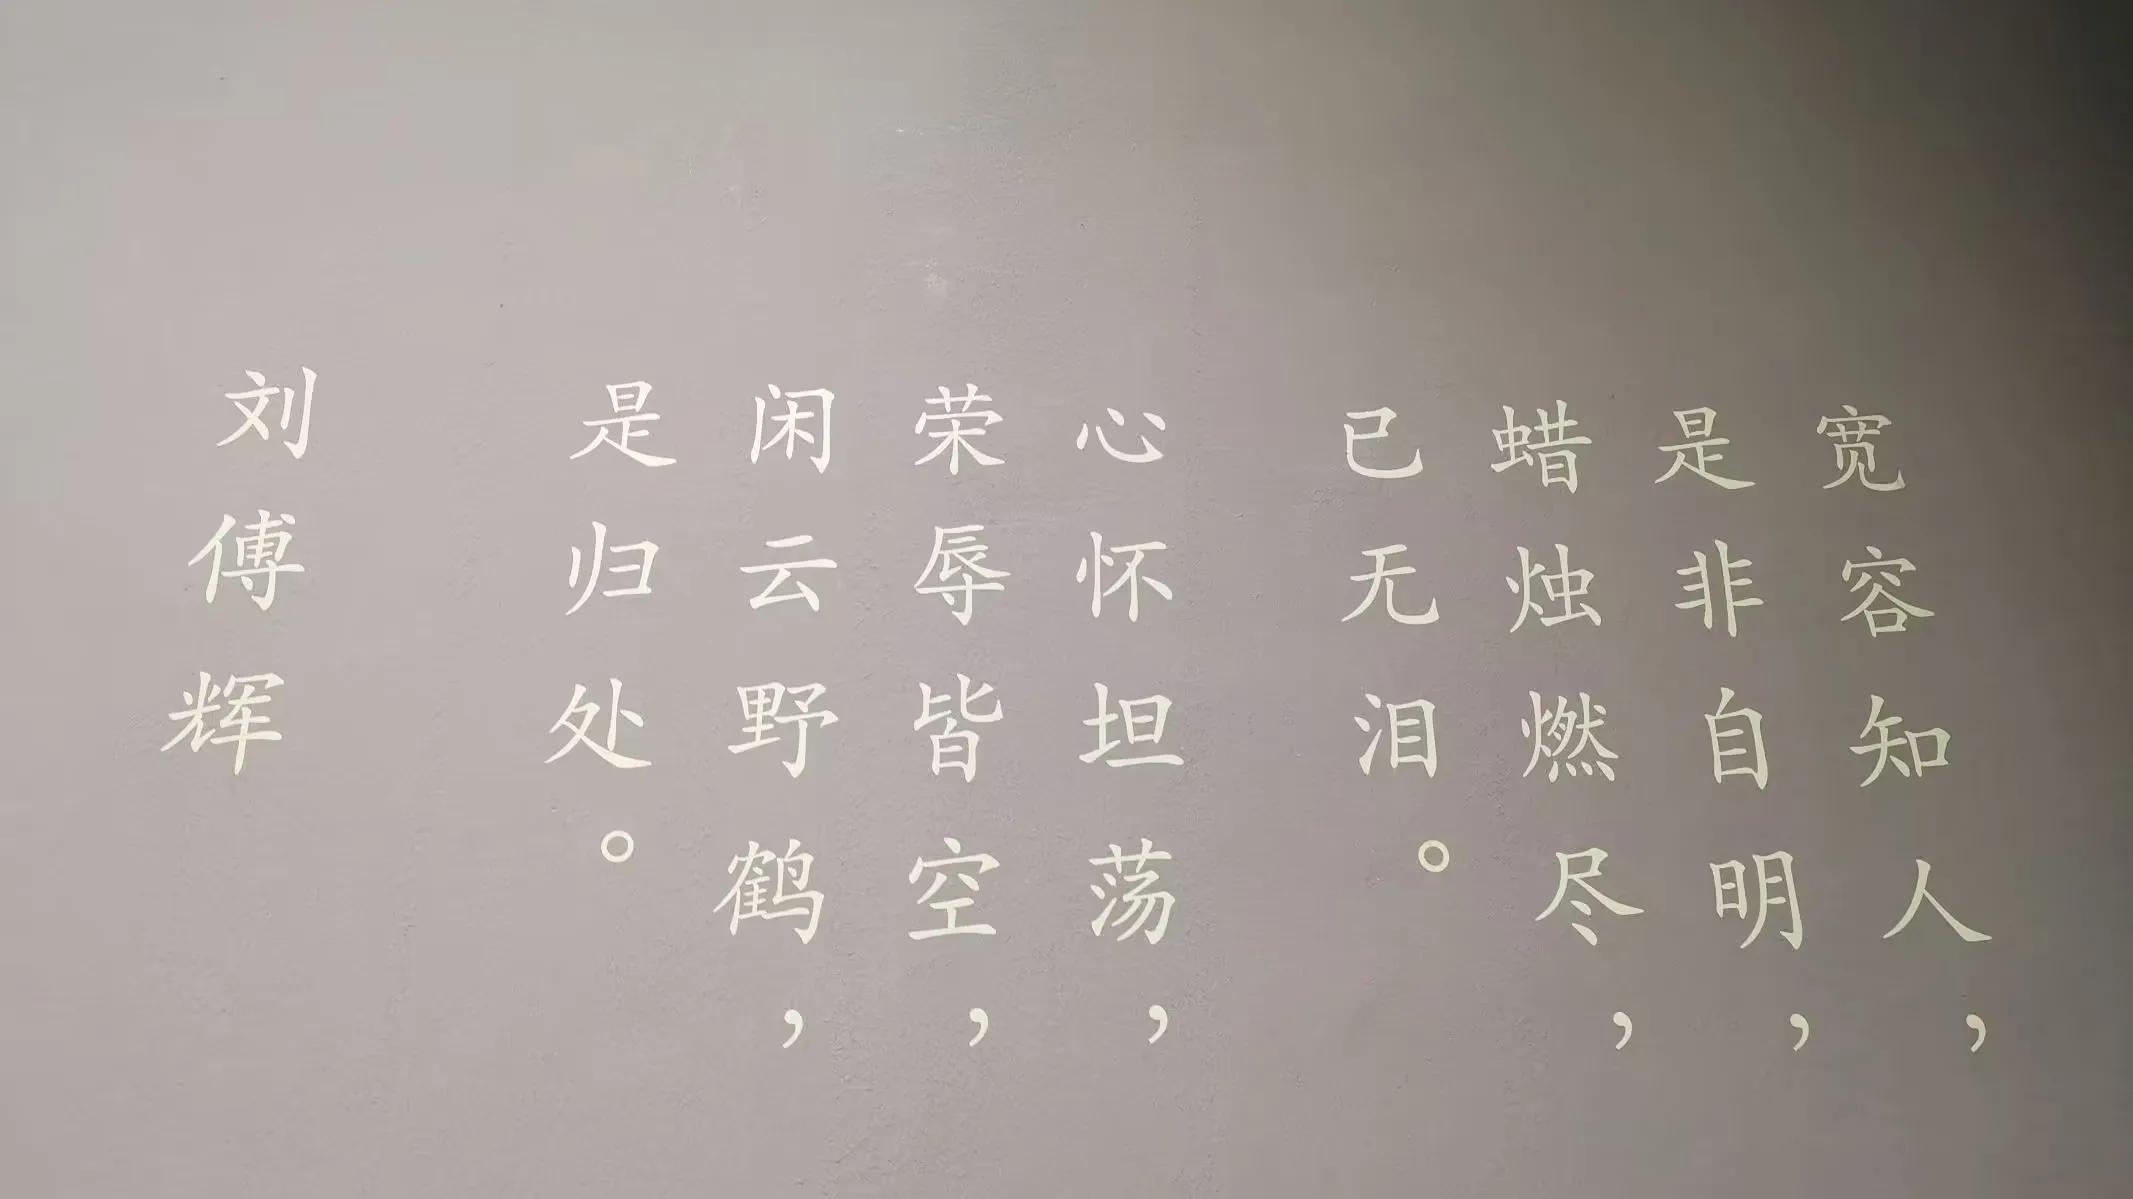 宽容知人，
是非自明，
蜡烛燃尽，
已无泪。
心怀坦荡，
荣辱皆空，
闲云野鹤，
是归处。
刘傅辉